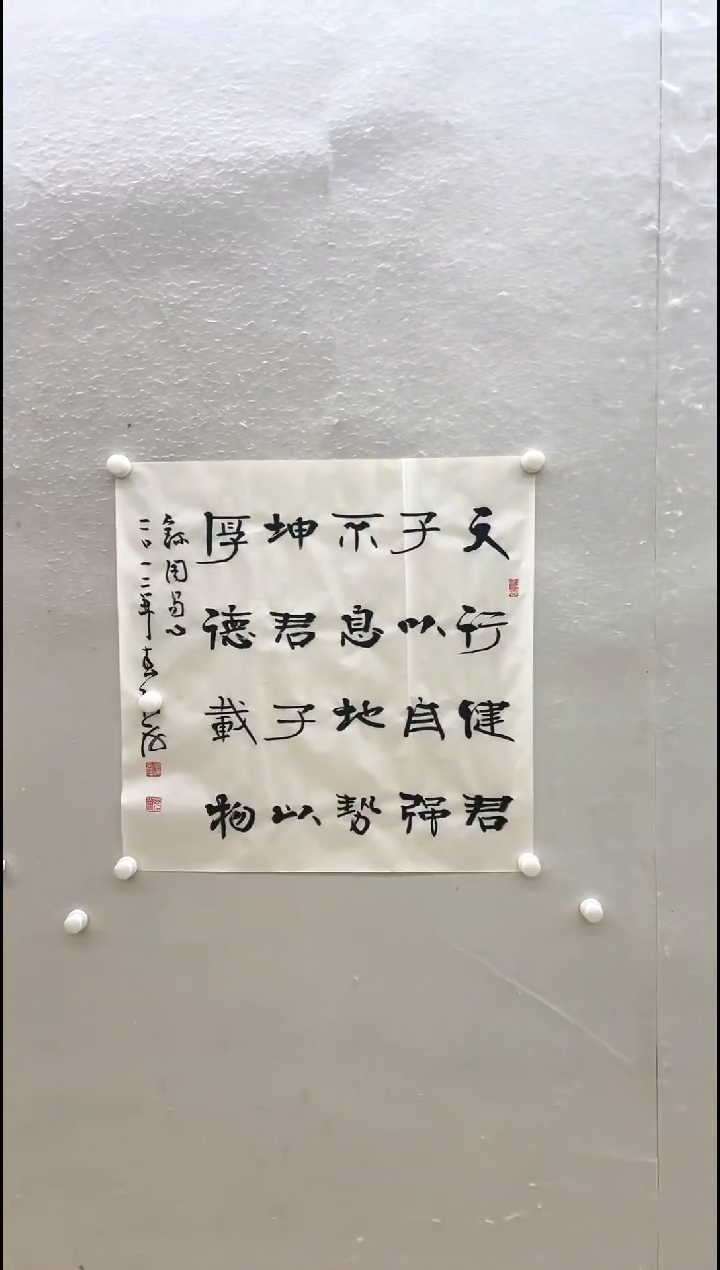 天行健君
子以自强
不息地勢
坤君子以
厚德載物
錄周易句
二〇一二年春